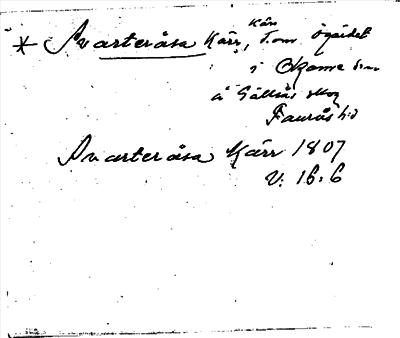 * Svarteråsa Kärr, Kärr, T.om Ögärdet
i Okome sn
å Gällsås skog
Faurås hd
Svarteråsa Kärr 1807
V: 16:6